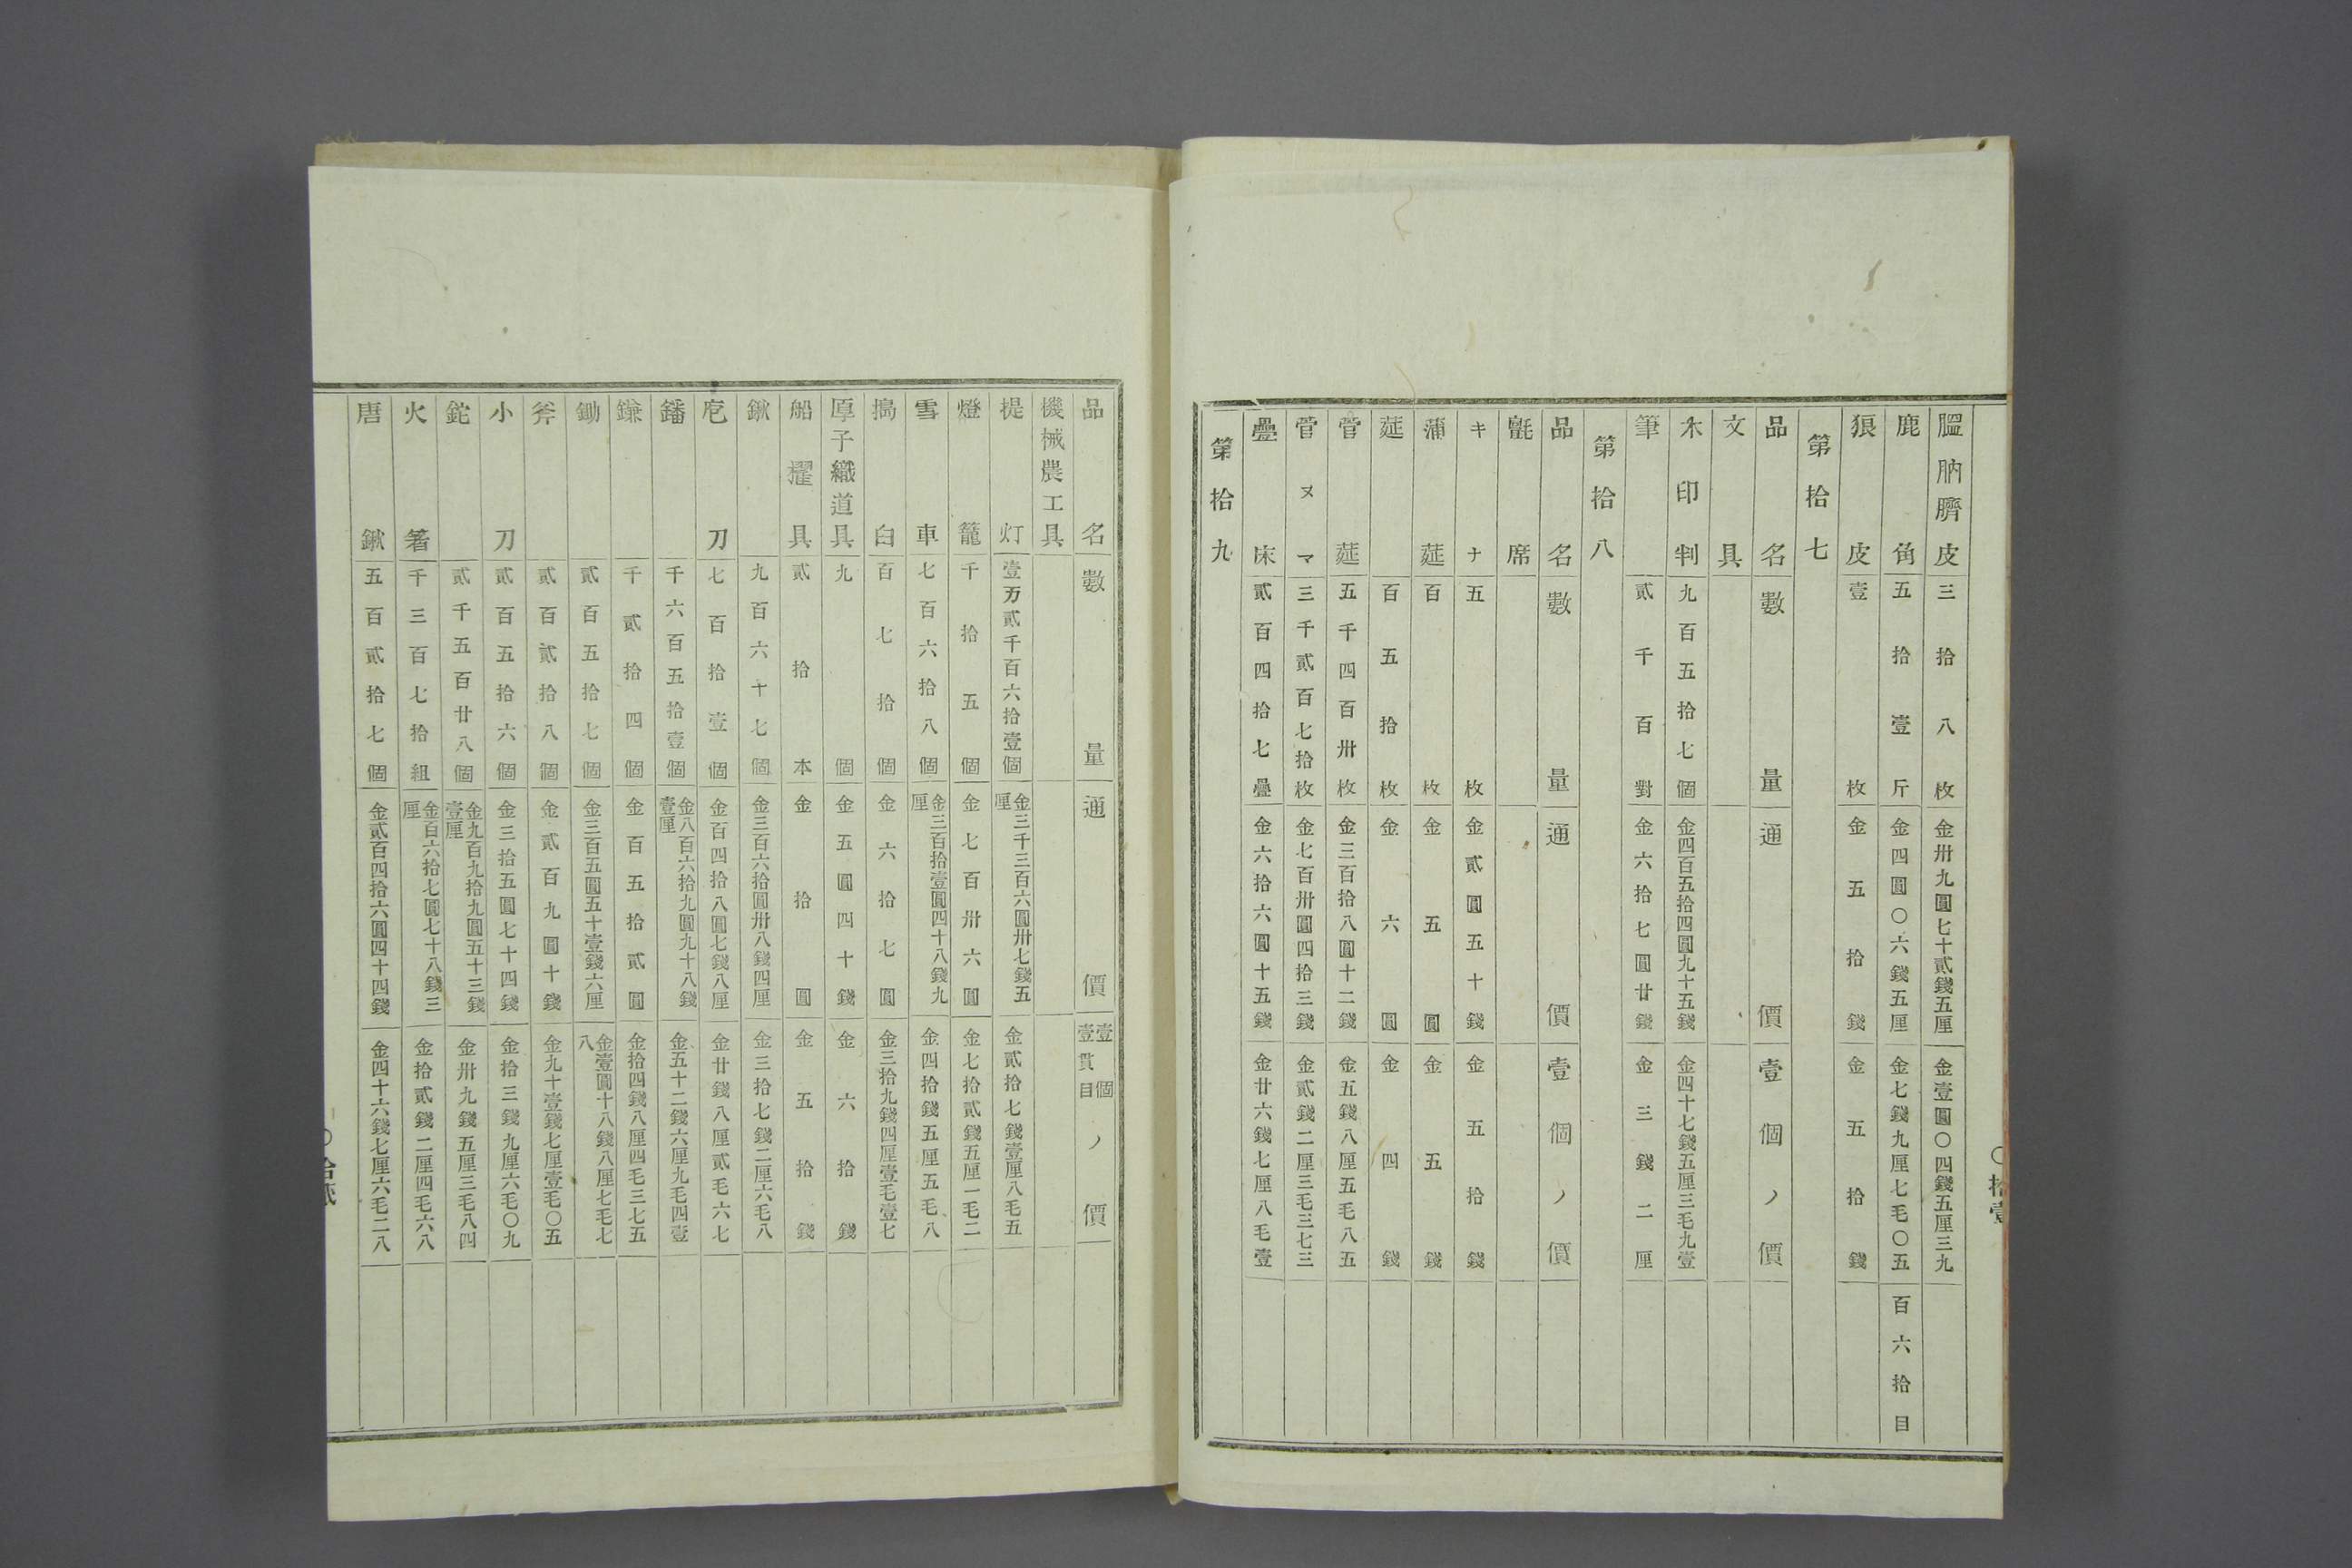 膃肭臍皮 三拾八枚 金卅九圓七十貳錢五厘 金壹圓〇四錢五厘三九
鹿角 五拾壹斤 金四圓〇六錢五厘 金七錢九厘七毛〇五 百六拾目
狼皮 壹枚 金五拾錢 金五拾錢
第拾七
品名 數量 通價 壹個ノ價
文具
木印判 九百五拾七個 金四百五拾四圓九十五錢 金四十七錢五厘三毛九壹
筆 貳千百對 金六拾七圓廿錢 金三錢二厘
第拾八
品名 數量 通價 壹個ノ價
氈席
キナ 五枚 金貳圓五十錢 金五拾錢
蒲莚 百枚 金五圓 金五錢
莚 百五拾枚 金六圓 金四錢
菅莚 五千四百卅枚 金三百拾八圓十二錢 金五錢八厘五毛八五
菅ヌマ 三千貳百七拾枚 金七百卅圓四拾三錢 金貳錢二厘三毛三七三
疊床 貳百四拾七疊 金六拾六圓十五錢 金廿六錢七厘八毛壹
第拾九
〇拾壹
品名 數量 通價 壹個壹貫目ノ價
機械農工具
提灯 壹万貳千百六拾壹個 金三千三百六圓卅七錢五厘 金貳拾七錢壹厘八毛五
燈籠 千拾五個 金七百卅六圓 金七拾貳錢五厘一毛二
雪車 七百六拾八個 金三百拾壹圓四十八錢九厘 金四拾錢五厘五毛八
搗臼 百七拾個 金六拾七圓 金三拾九錢四厘壹毛壹七
厚子織道具 九個 金五圓四十錢 金六拾錢
船擢具 貳拾本 金拾圓 金五拾錢
鍬 九百六十七個 金三百六拾圓卅八錢四厘 金三拾七錢二厘六毛八
庖刀 七百拾壹個 金百四拾八圓七錢八厘 金廿錢八厘貳毛六七
鐇 千六百五拾壹個 金八百六拾九圓九十八錢壹厘 金五十二錢六厘九毛四壹
鎌 千貳拾四個 金百五拾貳圓 金拾四錢八厘四毛三七五
鋤 貳百五拾七個 金三百五圓五十壹錢六厘 金壹圓十八錢八厘七毛七八
斧 貳百貳拾八個 金貳百九圓十錢 金九十壹錢七厘壹毛〇五
小刀 貳百五拾六個 金三拾五圓七十四錢 金拾三錢九厘六毛〇九
鉈 貳千五百廿八個 金九百九拾九圓五十三錢壹厘 金卅九錢五厘三毛八四
火箸 千三百七拾組 金百六拾七圓七十八錢三厘 金拾貳錢二厘四毛六八
唐鍬 五百貳拾七個 金貳百四拾六圓四十四錢 金四十六錢七厘六毛二八